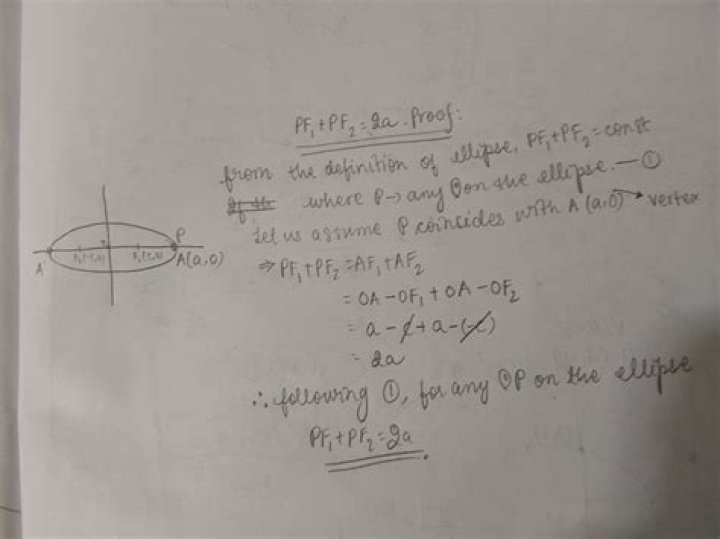 PF₁+PF₂=2a. Proof:
from the definition of ellipse, PF₁+PF₂=const
where P→ any ⊙ on the ellipse.—①
Let us assume P coincides with A(a,0)→ vertex
⇒ PF₁+PF₂=AF₁+AF₂
= OA-OF₁+OA-OF₂
= a-c+a-(-c)
= 2a
∴ following ①, for any ⊙P on the ellipse
PF₁+PF₂=2a.
P
A'
F₂(-c,0)
F₁(c,0)
A(a,0)